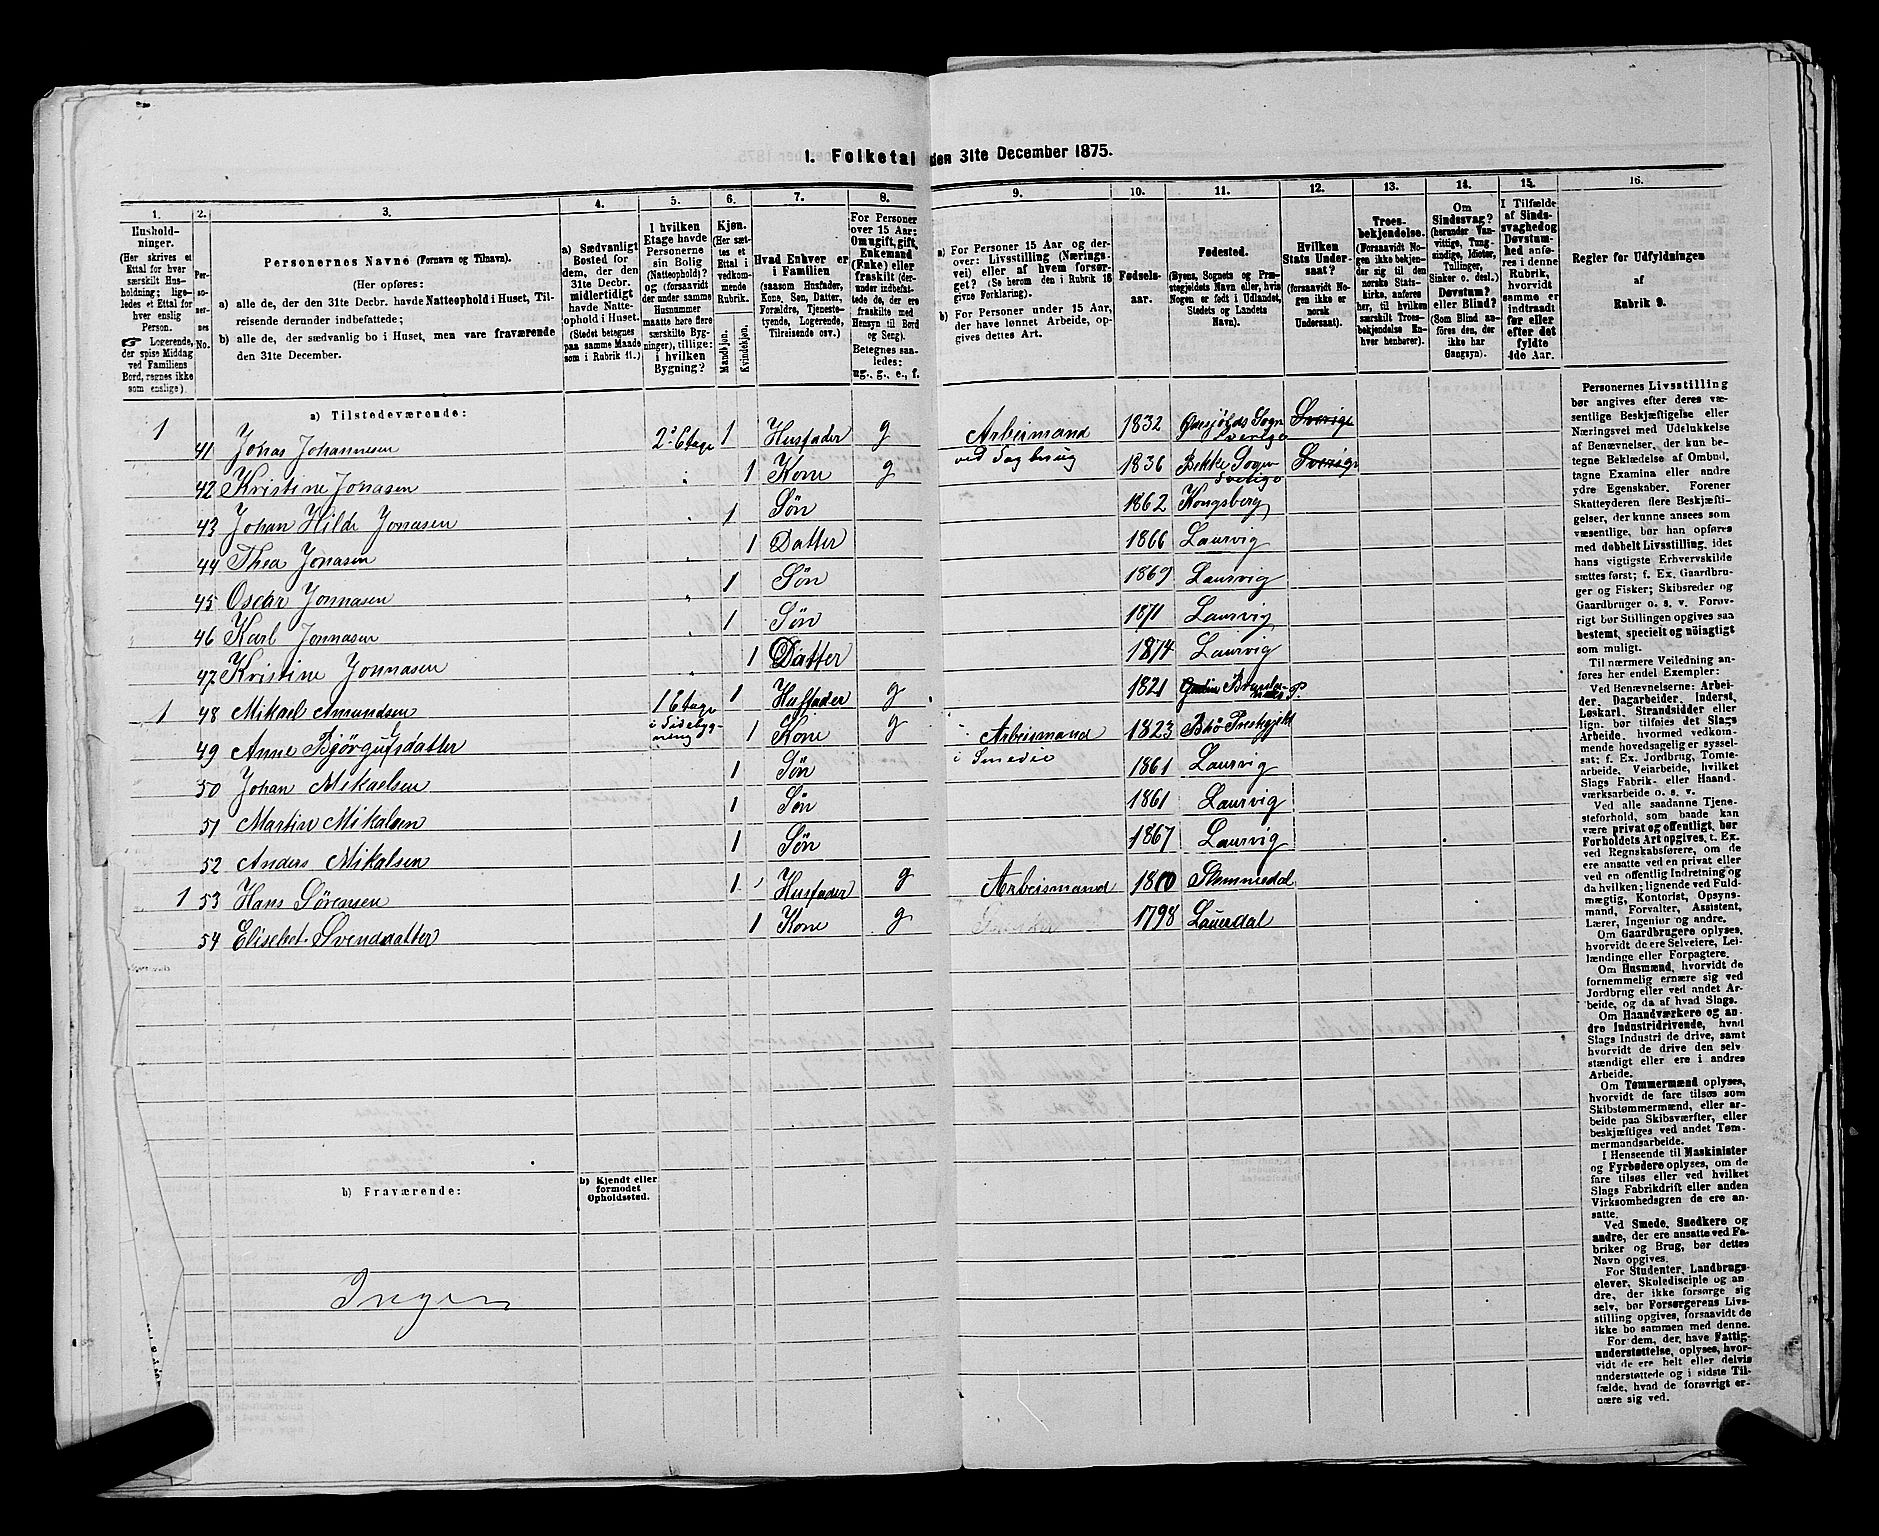 1. Folketal den 31te December 1875.
1.
2.
3.
4.
5.
6.
7.
8.
9.
10.
11.
12.
13.
14.
15.
16.
Husholdninger.
(Her skrives et Ettal for hver særskilt Husholdning; ligeledes et Ettal for hver enslig Person.
☞ Logerende, der spise Middag ved Familiens Bord, regnes ikke som enslige).
Personernes No.
Personernes Navne (Fornavn og Tilnavn).
(Her opføres:
a) alle de, der den 31te Decbr. havde Natteophold i Huset, Tilreisende derunder indbefattede;
b) alle de, der sædvanlig bo i Huset, men vare fraværende den 31te December.
a) Sædvanligt Bosted for dem, der den 31te Decbr. midlertidigt havde Natteophold i Huset.
(Stedet betegnes paa samme Maade som i Rubrik 11.)
I hvilken Etage havde Personerne sin Bolig (Natteophold)?
og (forsaavidt der under samme Husnummer maatte høre flere særskilte Bygninger), tillige: i hvilken Bygning?
Kjøn.
(Her sættes et Ettal i vedkommende Rubrik.
Mandkjøn.
Kvindekjøn.
Hvad Enhver er i Familien
(saasom Husfader, Kone, Søn, Datter, Forældre, Tjenestetyende, Logerende, Tilreisende osv.)
For Personer over 15 Aar: Om ugift, gift, Enkemand (Enke) eller fraskilt (derunder indbefattede de, der ere fraskilte med Hensyn til Bord og Seng).
Betegnes saaledes: ug., g., e., f.
a) For Personer 15 Aar og derover: Livsstilling (Næringsvei) eller af hvem forsørget? (Se herom den i Rubrik 16 givne Forklaring).
b) For Personer under 15 Aar, der have lønnet Arbeide, opgives dettes Art.
Fødselsaar.
Fødested.
(Byens, Sognets og Præstegjeldets Navn eller, hvis Nogen er født i Udlandet, Stedets og Landets Navn).
Hvilken Stats Undersaat?
(forsaavidt Nogen ikke er norsk Undersaat).
Troesbekjendelse.
(Forsaavidt Nogen ikke bekjender sig til den norske Statskirke, anføres her, til hvilken særskilt Troesbekjendelse Enhver henhører).
Om Sindssvag?
(herunder Vanvittige, Tungsindige, Idioter, Tullinger, Sinker o. desl.)
Døvstum? eller Blind?
(Som Blind anføres den, der ikke har Gangsyn).
I Tilfælde af Sindssvaghed og Døvstumhed anføres i denne Rubrik, hvorvidt samme er indtraadt før eller efter det fyldte 4de Aar.
Regler for Udfyldningen af Rubrik 9.
a) Tilstedeværende:
1 41 Jonas Johannesen 2. Etage 1 Husfader g Arbeismand 1832 Sogn Sverige Sverige
ved Sagbrug
42 Kristine Jonasen 1 Kone g 1836 Bekke Sogn Sverige Sverige
43 Johan Hilde Jonasen 1 Søn 1862 Kongsberg
44 Thea Jonasen 1 Datter 1866 Laurvig
45 Oscar Jonnasen 1 Søn 1869 Laurvig
46 Karl Jonnasen 1 Søn 1871 Laurvig
47 Kristine Jonnasen 1 Datter 1874 Laurvig
1 48 Mikael Amundsen 1 Etage 1 Husfader g 1821
i Sidebygning
49 Anne Bjørgufsdatter 1 Kone g Arbeismand 1823 Bhø Prestegjeld
i Smedie
50 Johan Mikaelsen 1 Søn 1861 Laurvig
51 Martin Mikalsen 1 Søn 1861 Laurvig
52 Anders Mikalsen 1 Søn 1867 Laurvig
1 53 Hans Sørensen 1 Husfader g Arbeismand 1810 Slemmedal
54 Elisebet Svendsdatter 1 Kone g 1798 Lauerdal
b) Fraværende:
b) Kjendt eller formodet Opholdssted.
Ingen
Personernes Livsstilling
bør angives efter deres væ-
sentlige Beskjæftigelse eller
Næringsvei med Udelukkelse
af Benævnelser, der kun be-
tegne Beklædelse af Ombud,
tagne Examina eller andre
ydre Egenskaber. Forener
Skatteyderen flere Beskjæfti-
gelser, der kunne ansees som
væsentlige, bør han opføres
med dobbelt Livsstilling, idet
hans vigtigste Erhvervskilde
sættes først; f. Ex. Gaardbru-
ger og Fisker; Skibsreder og
Gaardbruger o. s. v. Forøv-
rigt bør Stillingen opgives saa
bestemt, specielt og nøiagtigt
som muligt.
Til nærmere Veiledning an-
føres her endel Exempler:
Ved Benævnelserne: Arbei-
der, Dagarbeider, Inderst,
Løskarl, Strandsidder eller
lign. bør tilføies det Slags
Arbeide, hvormed vedkom-
mende hovedsagelig er syssel-
sat; f. Ex. Jordbrug, Tomte-
arbeide, Veiarbeide, hvilket
Slags Fabrik- eller Haand-
værksarbeide o. s. v.
Ved alle saadanne Tjene-
steforhold, som baade kan
være privat og offentligt, bør
Forholdets Art opgives, t. Ex.
ved Regnskabsførere, om de
ere ansatte ved en privat eller
ved en offentlig Indretning og
da hvilken; lignende ved Fuld-
mægtig, Kontorist, Opsyns-
mand, Forvalter, Assistent,
Lærer, Ingeniør og andre.
Om Gaardbrugere oplyses,
hvorvidt de ere Selveiere, Lei-
lændinge eller Forpagtere.
Om Husmænd, hvorvidt de
fornemmelig ernære sig ved
Jordbrug eller ved andet Ar-
beide, og da af hvad Slags.
Om Haandværkere og an-
dre Industridrivende, hvad
Slags Industri de drive, samt
hvorvidt de drive den selv-
stændigt eller ere i andres
Arbeide.
Om Tømmermænd oplyses,
hvorvidt de fare tilsøs som
Skibstømmermænd, eller ar-
beide paa Skibsværfter, eller
beskjæftiges ved andet Tøm-
mermandsarbeide.
I Henseende til Maskinister
og Fyrbødere oplyses, om de
fare tilsøs eller ved hvilket
Slags Fabrikdrift eller anden
Virksomhedsgren de ere an-
satte.
Ved Smede, Snedkere og
andre, der ere ansatte ved Fa-
briker og Brug, bør dettes
Navn opgives.
For Studenter, Landbrugs-
elever, Skoledisciple og an-
dre, der ikke forsørge sig
selv, bør Forsørgerens Livs-
stilling opgives, forsaavidt de
ikke bo sammen med denne.
For dem, der have Fattig-
understøttelse, oplyses, hvor-
vidt de ere helt eller delvis
understøttede og i sidste Til-
fælde, hvad de forøvrigt er-
nære sig ved.